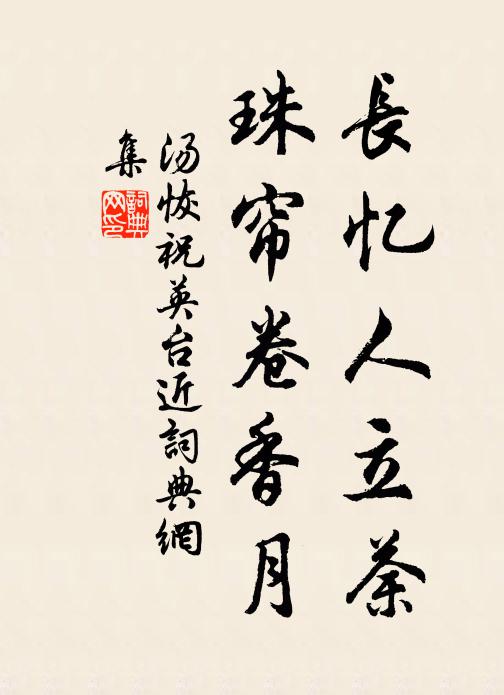 長忆人立荼
珠帘卷香月
汤恢祝英台近詞典網
集
詞典网印